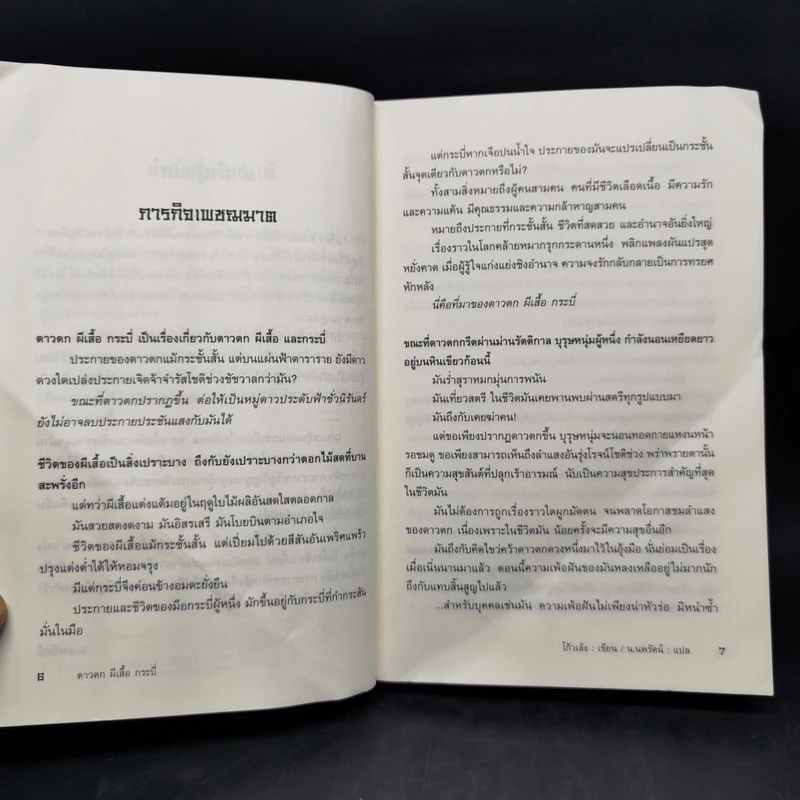 ภารกิจเพชฌฆาต
ดาวตก ผีเสื้อ กระบี่ เป็นเรื่องเกี่ยวกับดาวตก ผีเสื้อ และกระบี่
ประกายของดาวตกแม้กระชั้นสั้น แต่บนแผ่นฟ้าดาราราย ยังมีดาว
ดวงใดเปล่งประกายเจิดจ้าจำรัสโชติช่วงชัชวาลกว่ามัน?
ขณะที่ดาวตกปรากฏขึ้น ต่อให้เป็นหมู่ดาวประดับฟ้าชั่วนิรันดร์
ยังไม่อาจลบประกายประชันแสงกับมันได้
ชีวิตของผีเสื้อเป็นสิ่งเปราะบาง ถึงกับยังเปราะบางกว่าดอกไม้สดที่บาน
สะพรั่งอีก
แต่ทว่าผีเสื้อแต่งแต้มอยู่ในฤดูใบไม้ผลิอันสดใสตลอดกาล
มันสวยสดงดงาม มันอิสรเสรี มันโบยบินตามอำเภอใจ
ชีวิตของผีเสื้อแม้กระชั้นสั้น แต่เปี่ยมไปด้วยสีสันอันเพริศแพร้ว
ปรุงแต่งต่ำใต้ให้หอมจรุง
มีแต่กระบี่จึงค่อนข้างอมตะยั่งยืน
ประกายและชีวิตของมือกระบี่ผู้หนึ่ง มักขึ้นอยู่กับกระบี่ที่กำกระสัน
มั่นในมือ
6 ดาวตก ผีเสื้อ กระบี่
แต่กระบี่หากเจือปนน้ำใจ ประกายของมันจะแปรเปลี่ยนเป็นกระชั้น
สั้นจุดเดียวกับดาวตกหรือไม่?
ทั้งสามสิ่งหมายถึงผู้คนสามคน คนที่มีชีวิตเลือดเนื้อ มีความรัก
และความแค้น มีคุณธรรมและความกล้าหาญสามคน
หมายถึงประกายที่กระชั้นสั้น ชีวิตที่สดสวย และอำนาจอันยิ่งใหญ่
เรื่องราวในโลกคล้ายหมากรุกกระดานหนึ่ง พลิกแพลงผันแปรสุด
หยั่งคาด เมื่อผู้รู้ใจแก่งแย่งชิงอำนาจ ความจงรักกลับกลายเป็นทรยศ
หักหลัง
นี่คือที่มาของดาวตก ผีเสื้อ กระบี่
ขณะที่ดาวตกกรีดผ่านม่านรัตติกาล บุรุษหนุ่มผู้หนึ่ง กำลังนอนเหยียดยาว
อยู่บนหินเขียวก้อนนี้
มันร่ำสุราหมกมุ่นการพนัน
มันเที่ยวสตรี ในชีวิตมันเคยพานพบผ่านสตรีทุกรูปแบบมา
มันถึงกับเคยฆ่าคน!
แต่ขอเพียงปรากฏดาวตกขึ้น บุรุษหนุ่มจะนอนทอดกายแหงนหน้า
รอชมดู ขอเพียงสามารถเห็นถึงลำแสงอันรุ่งโรจน์โชติช่วง พร่าพรายตานั้น
ก็เป็นความสุขสันต์ที่ปลุกเร้าอารมณ์ นับเป็นความสุขประการสำคัญที่สุด
ในชีวิตมัน
มันไม่ต้องการถูกเรื่องราวใดผูกมัดตน จนพลาดโอกาสชมลำแสง
ของดาวตก เนื่องเพราะในชีวิตมัน น้อยครั้งจะมีความสุขอื่นอีก
มันถึงกับคิดไขว่คว้าดาวตกดวงหนึ่งมาไว้ในอุ้งมือ นั่นย่อมเป็นเรื่อง
เมื่อเนิ่นนานมาแล้ว ตอนนี้ความเพ้อฝันของมันหลงเหลืออยู่ไม่มากนัก
ถึงกับแทบสิ้นสูญไปแล้ว
...สำหรับบุคคลเช่นมัน ความเพ้อฝันไม่เพียงน่าหัวร่อ มิหนำซ้ำ
โก้วเล้ง : เขียน / น.นพรัตน์ : แปล 7